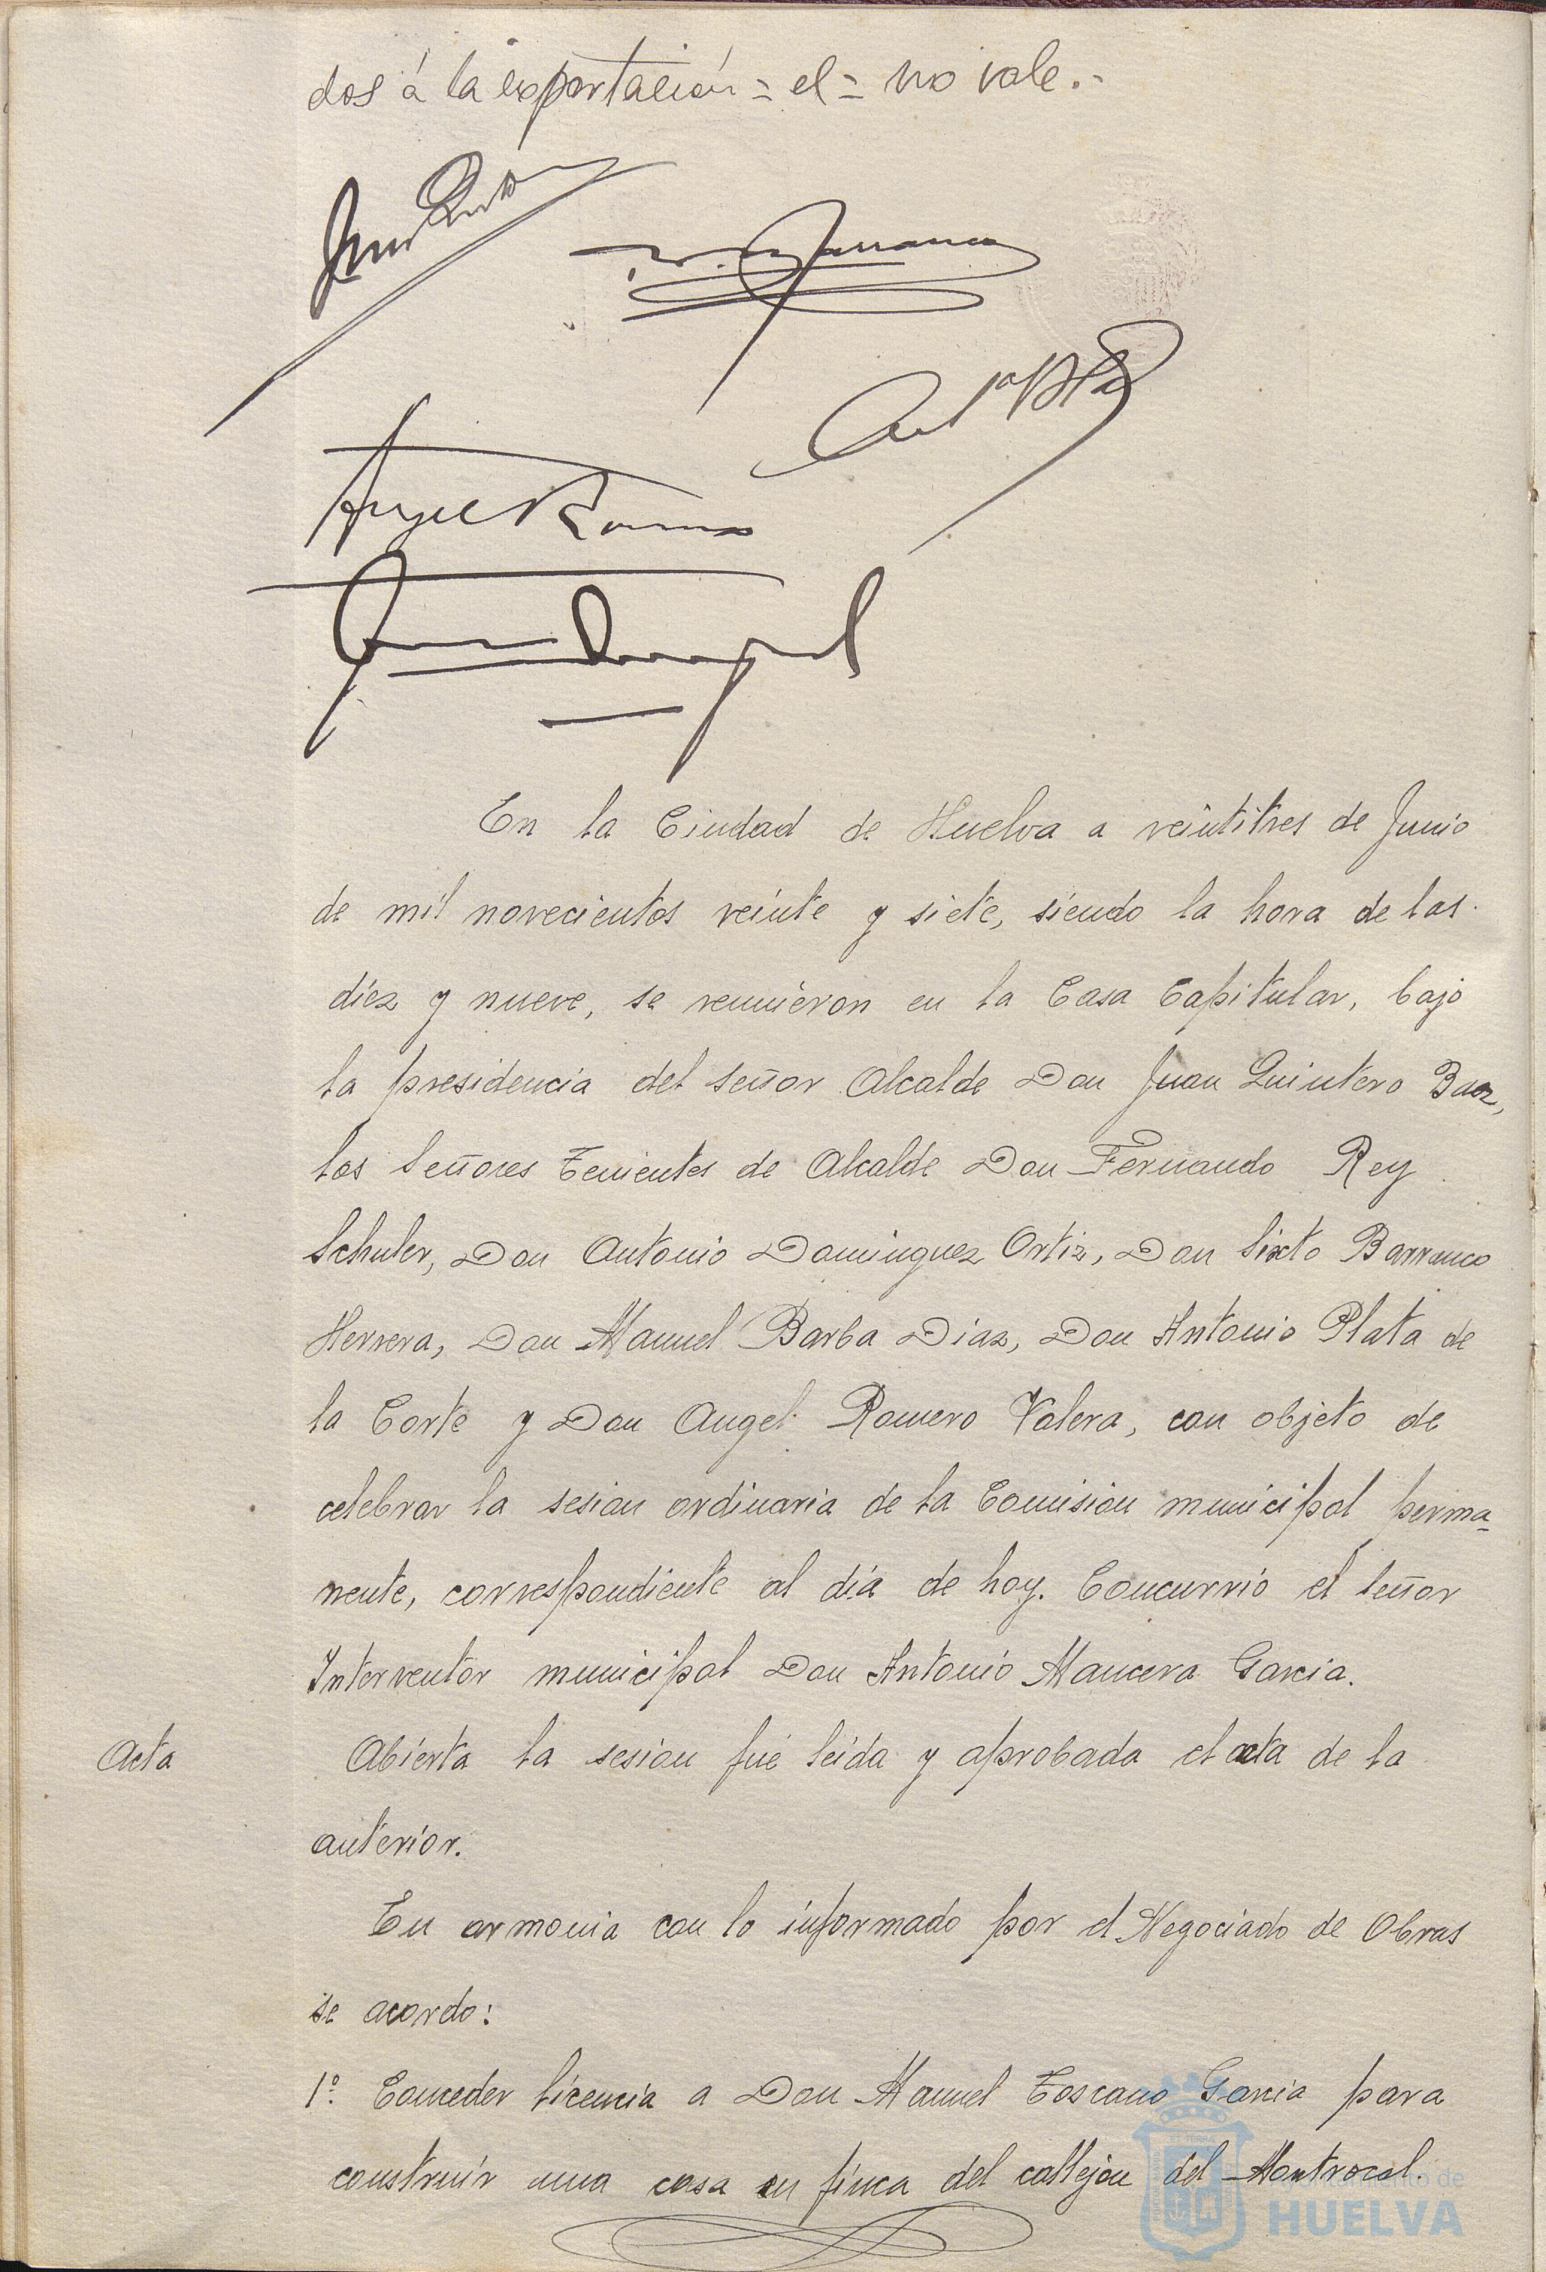 dos á la exportación = el = no vale.-
Angel Romero
En la Ciudad de Huelva a veintitres de Junio
de mil novecientos veinte y siete, siendo la hora de las
diez y nueve, se reunieron en la Casa Capitular, bajo
la presidencia del Señor Alcalde Don Juan Quintero Baez,
los Señores Tenientes de Alcalde Don Fernando Rey
Schuler, Don Antonio Dominguez Ortiz, Don Sixto Barranco
Herrera, Don Manuel Barba Diaz, Don Antonio Plata de
la Corte y Don Angel Romero Valera, con objeto de
celebrar la sesion ordinaria de la Comision municipal perma-
nente, correspondiente al dia de hoy. Concurrio el Señor
Interventor municipal Don Antonio Mancera Garcia.
Acta Abierta la sesion fué leida y aprobada el acta de la
anterior.
En armonia con lo informado por el Negociado de Obras
se acordo:
1º. Conceder licencia a Don Manuel Toscano Garcia para
construir una casa en finca del callejon del Montrocal.
Ayuntamiento de
HUELVA